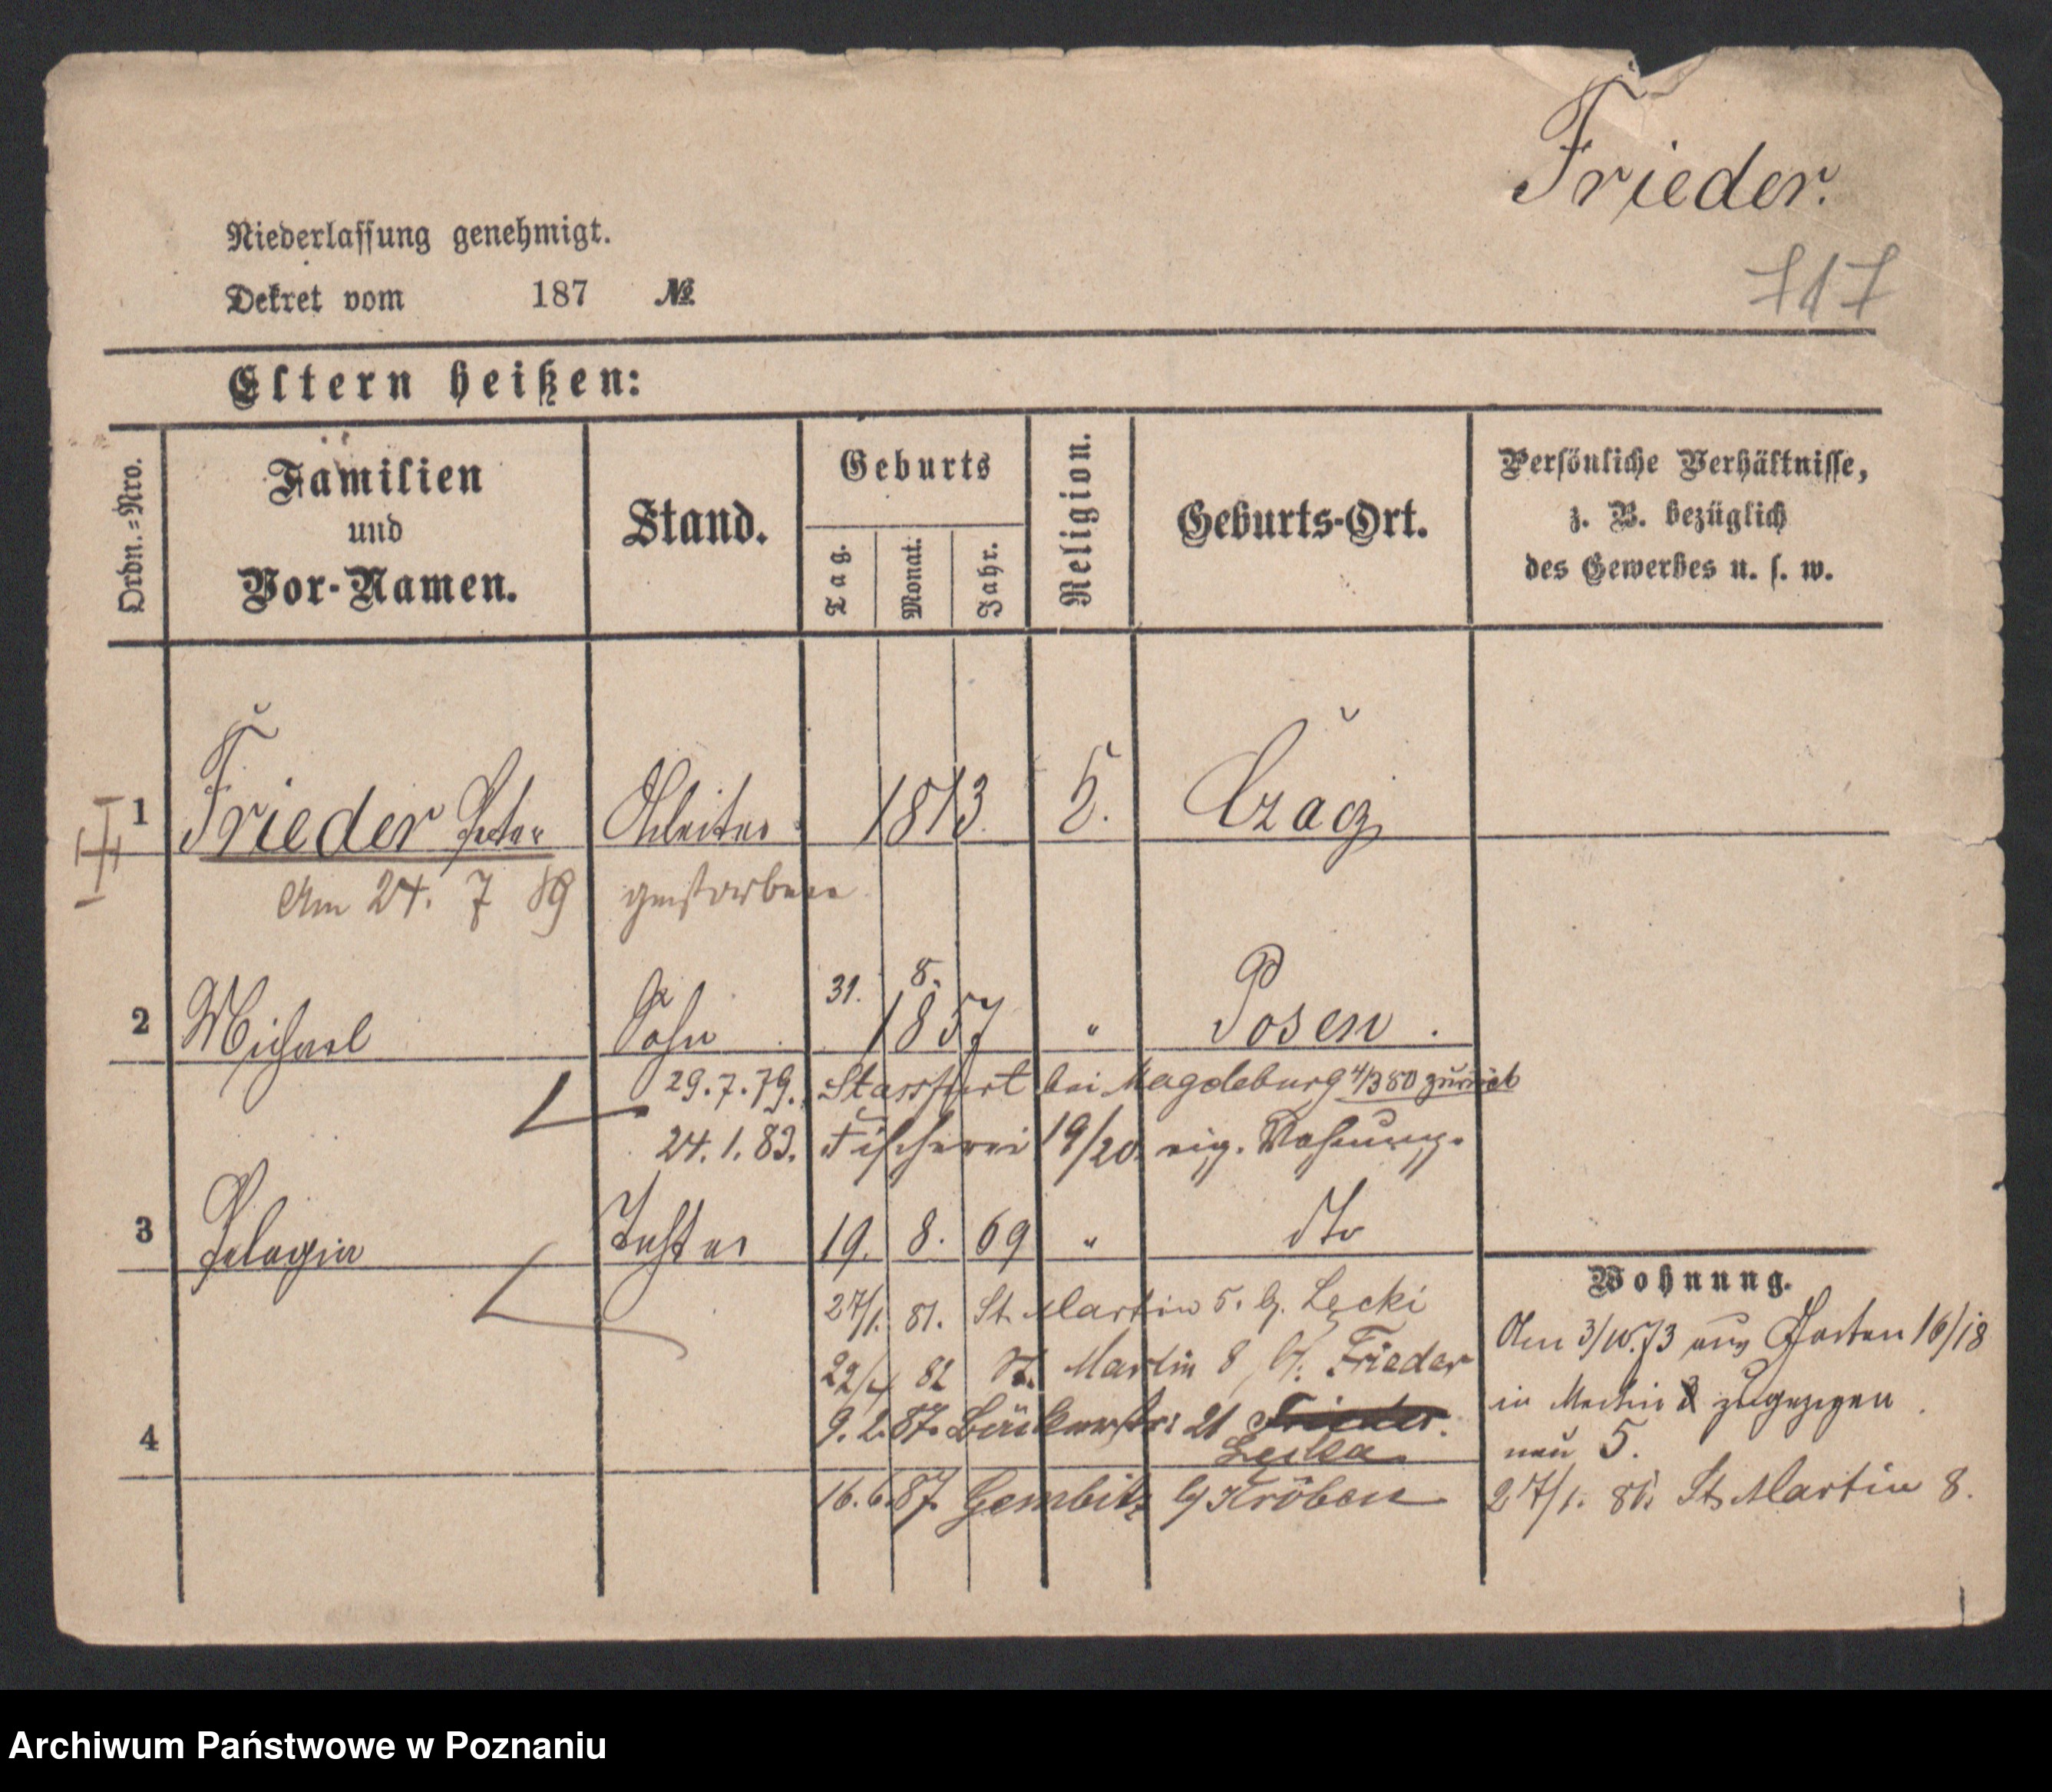 Frieder.
717
Niederlassung genehmigt.
Dekret vom 187 №
Eltern heißen:
Ordn.=Nro.
Familien
und
Vor-Namen.
Stand.
Geburts
Tag.
Monat.
Jahr.
Religion.
Geburts-Ort.
Persönliche Verhältnisse,
z. B. bezüglich
des Gewerbes u. s. w.
1 Frieder Peter Arbeiter 1813. Czacz
Am 24. 7 89 gestorben
2 Michael Sohn 31. 8. 1857 " Posen.
29.7.79. Stassfurt bei Magdeburg 4/3 80 zurück
24.1.83. Fischerei 19/20. eig. Wohnung.
3 Pelagia Tochter 19. 8. 69 " dto
27/1. 81. St. Martin 5. b. Łęcki
22/ 82 St. Martin 8 b. Frieder
4
9.2.87. Bäckerstr: 21 Frieder.
16.6.87. Gembitz b/ Kröben
Wohnung.
Am 3/10.73 aus Garten 16/18
in Martin zugezogen
neu 5.
27/1. 81. St. Martin 8.
Archiwum Państwowe w Poznaniu